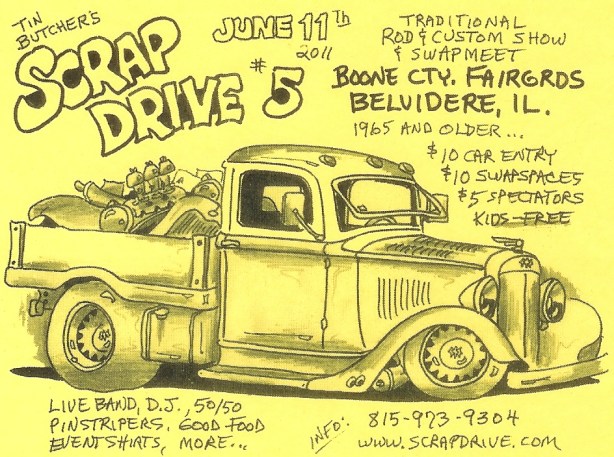 TIN
BUTCHER'S
SCRAP
DRIVE #5
JUNE 11Th
2011
TRADITIONAL
ROD & CUSTOM SHOW
& SWAPMEET
BOONE CTY. FAIRGRDS
BELVIDERE, IL.
1965 AND OLDER...
$10 CAR ENTRY
$10 SWAPSPACES
$5 SPECTATORS
KIDS-FREE
LIVE BAND, D.J., 50/50
PINSTRIPERS, GOOD FOOD
EVENT SHIRTS, MORE...
INFO: 815-973-9304
WWW.SCRAPDRIVE.COM